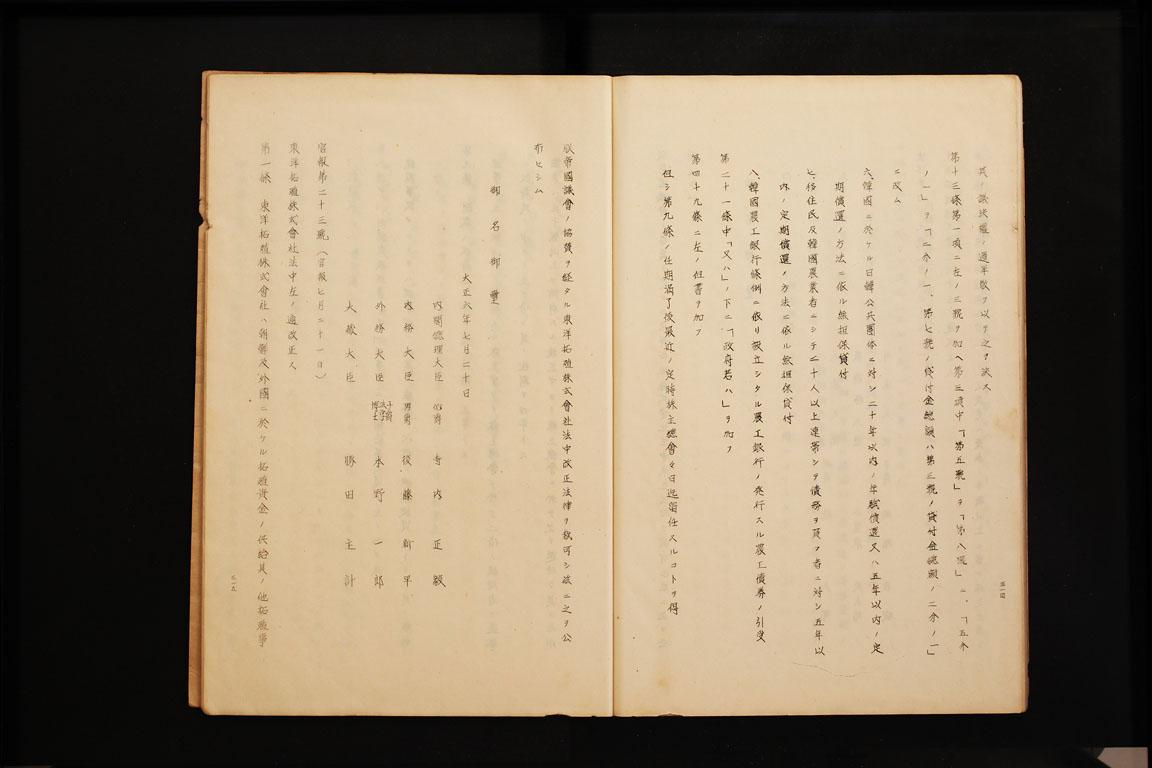 其ノ議決權ノ過半數ヲ以テ之ヲ決ス
第十三條第一項ニ左ノ三號ヲ加ヘ第三項中「第五號」ヲ「第八號」ニ、「五分
ノ一」ヲ「二分ノ一、第七號ノ貸付金總額ハ第三號ノ貸付金總額ノ二分ノ一」
ニ改ム
六、韓國ニ於ケル日韓公共團体ニ対シ二十年以内ノ年賦償還又ハ五年以内ノ定
期償還ノ方法ニ依ル無担保貸付
七、移住民及韓國農業者ニシテ二十人以上連帶シテ債務ヲ負フ者ニ対シ五年以
内ノ定期償還ノ方法ニ依ル無担保貸付
八、韓國農工銀行條例ニ依リ設立シタル農工銀行ノ発行スル農工債券ノ引受
第二十一條中「又ハ」ノ下ニ「政府若ハ」ヲ加フ
第四十九條ニ左ノ但書ヲ加フ
但シ第九條ノ任期満了後最近ノ定時株主總會ノ日迄留任スルコトヲ得
五一四
朕帝國議會ノ協賛ヲ経タル東洋拓殖株式會社法中改正法律ヲ裁可シ茲ニ之ヲ公
布セシム
御名御璽
大正六年七月二十日
内閣總理大臣 伯爵 寺内正毅
内務大臣 男爵 後藤新平
外務大臣 子爵 法学博士 本野一郎
大藏大臣 勝田主計
官報第二十三號（官報七月二十一日）
東洋拓殖株式會社法中左ノ通改正ス
第一條 東洋拓殖株式會社ハ朝鮮及外國ニ於ケル拓殖資金ノ供給其ノ他拓殖事
五一五